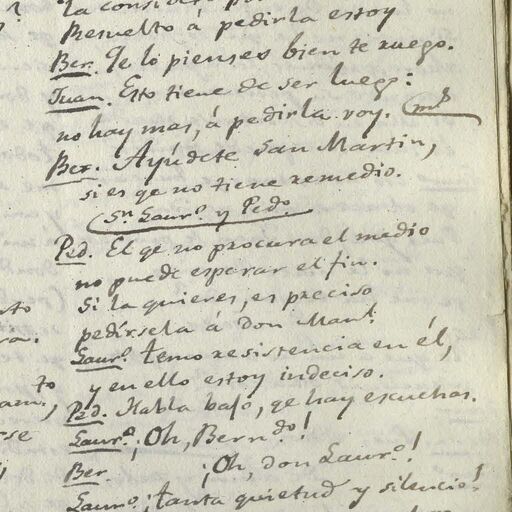 la conside
Resuelto á pedirla estoy
Ber. Qe lo pienses bien te ruego.
Juan. Esto tiene de ser luego:
no hay mas, á pedirla voy.
Ber. Ayúdete San Martin,
si es qe no tiene remedio.
Sn. Laurº. y Pedº.
Ped. El qe no procura el medio
no puede esperar el fin.
Si la quieres, es preciso
pedírsela á don Manl.
Laurº. temo resistencia en él,
y en ello estoy indeciso.
Ped. Habla bajo, qe hay escuchas.
Laurº. ¡Oh, Berndo!
Ber. ¡Oh, don Laurº.!
Laurº. ¡tanta quietud y silencio!